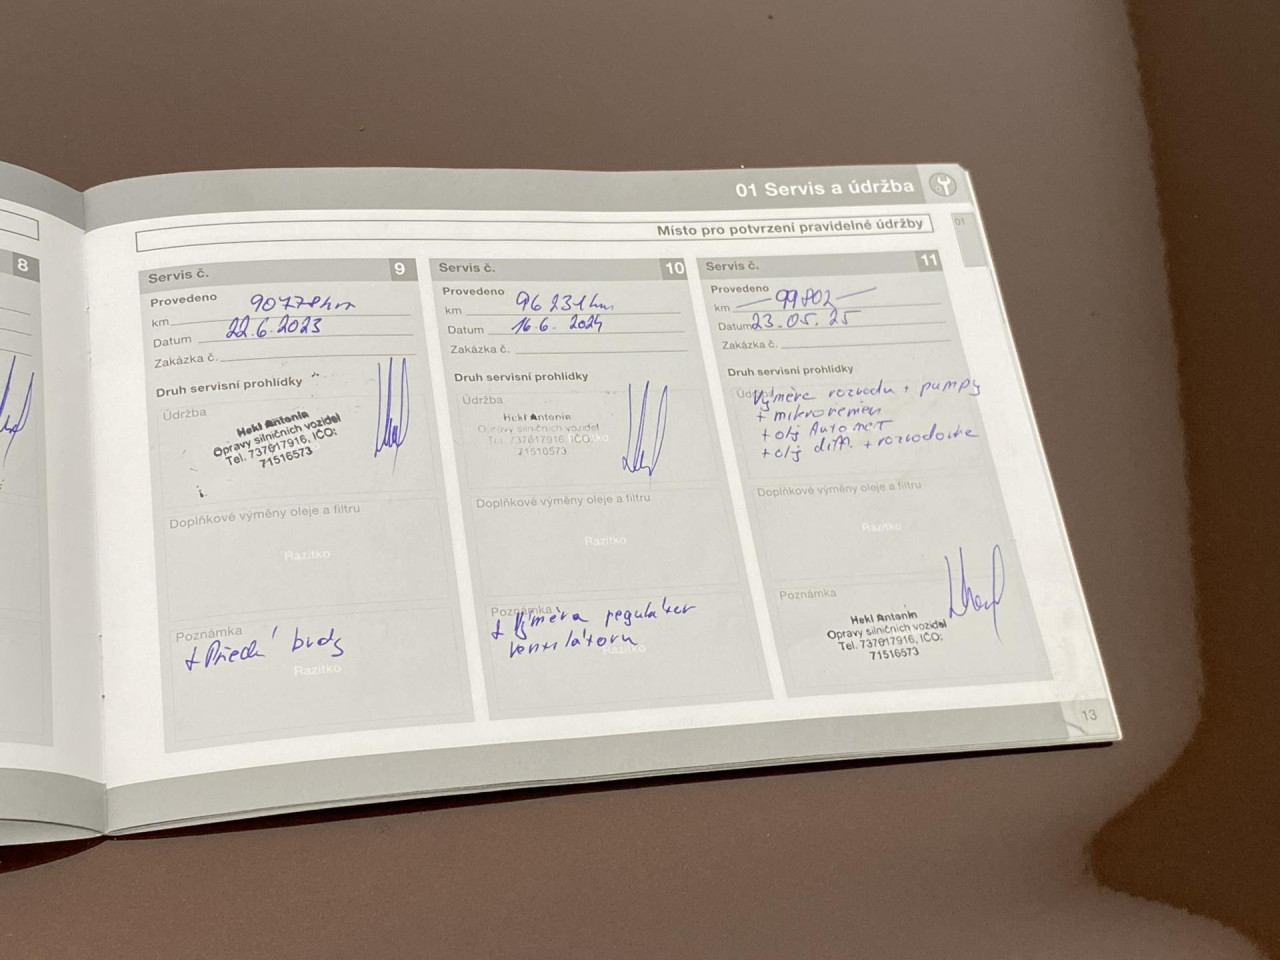 01 Servis a údržba
01
Místo pro potvrzení pravidelné údržby
8
Servis č. 9
Provedeno
km 90778km
Datum 22.6.2023
Zakázka č.
Druh servisní prohlídky
Údržba
Hekl Antonín
Opravy silničních vozidel
Tel. 737617916, IČO:
71516573
Doplňkové výměny oleje a filtru
Razítko
Poznámka
+ Přední brzdy
Razítko
Servis č. 10
Provedeno
km 96231km
Datum 16.6. 2024
Zakázka č.
Druh servisní prohlídky
Údržba
Hekl Antonín
Opravy silničních vozidel
Tel. 737617916, IČO:
71516573
Doplňkové výměny oleje a filtru
Razítko
Poznámka
+ Výměna regulátor
ventilátoru
Razítko
Servis č. 11
Provedeno
km 99802
Datum 23.05.25
Zakázka č.
Druh servisní prohlídky
Výměna rozvodu + pumpy
+ mikrořemen
+ olej Automat
+ olej diff. + rozvodovka
Doplňkové výměny oleje a filtru
Razítko
Poznámka
Hekl Antonín
Opravy silničních vozidel
Tel. 737617916, IČO:
71516573
13